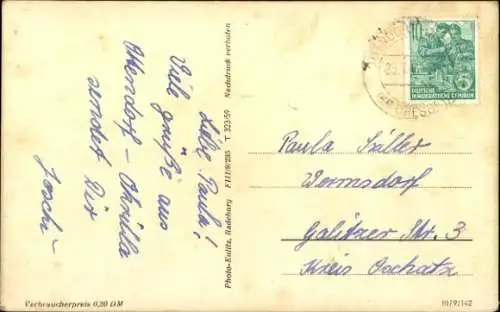 Lb. Paula!
Viele Grüße aus
Ottendorf-Okrilla
sendet Dir
Photo-Kulitz, Radeburg F 111/9/285 T 323/59 Nachdruck verboten
10
DEUTSCHE
DEMOKRATISCHE REPUBLIK
5
Paula
Wermsdorf
Galitzer Str. 3
Kreis Oschatz
Verbraucherpreis 0,20 DM
III/9/142